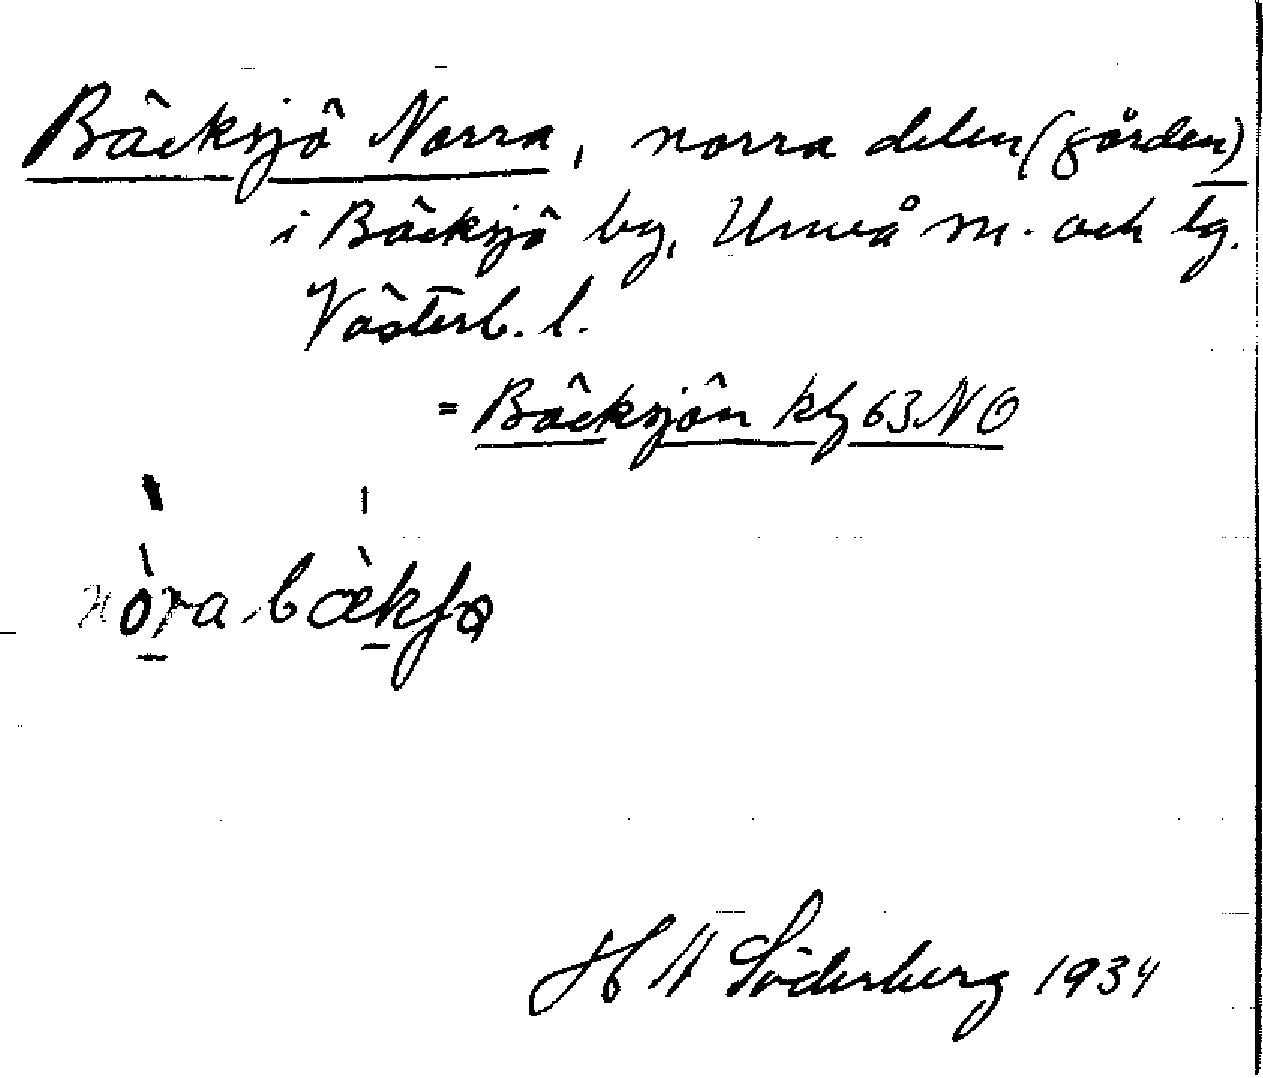 Bäcksjö Norra, norra delen (gården)
i Bäcksjö by, Umeå m. och lg.
Västerb. l.
= Bäcksjön kbl 63 NO
nòra-bæ̀kʃø
H W Söderberg 1934